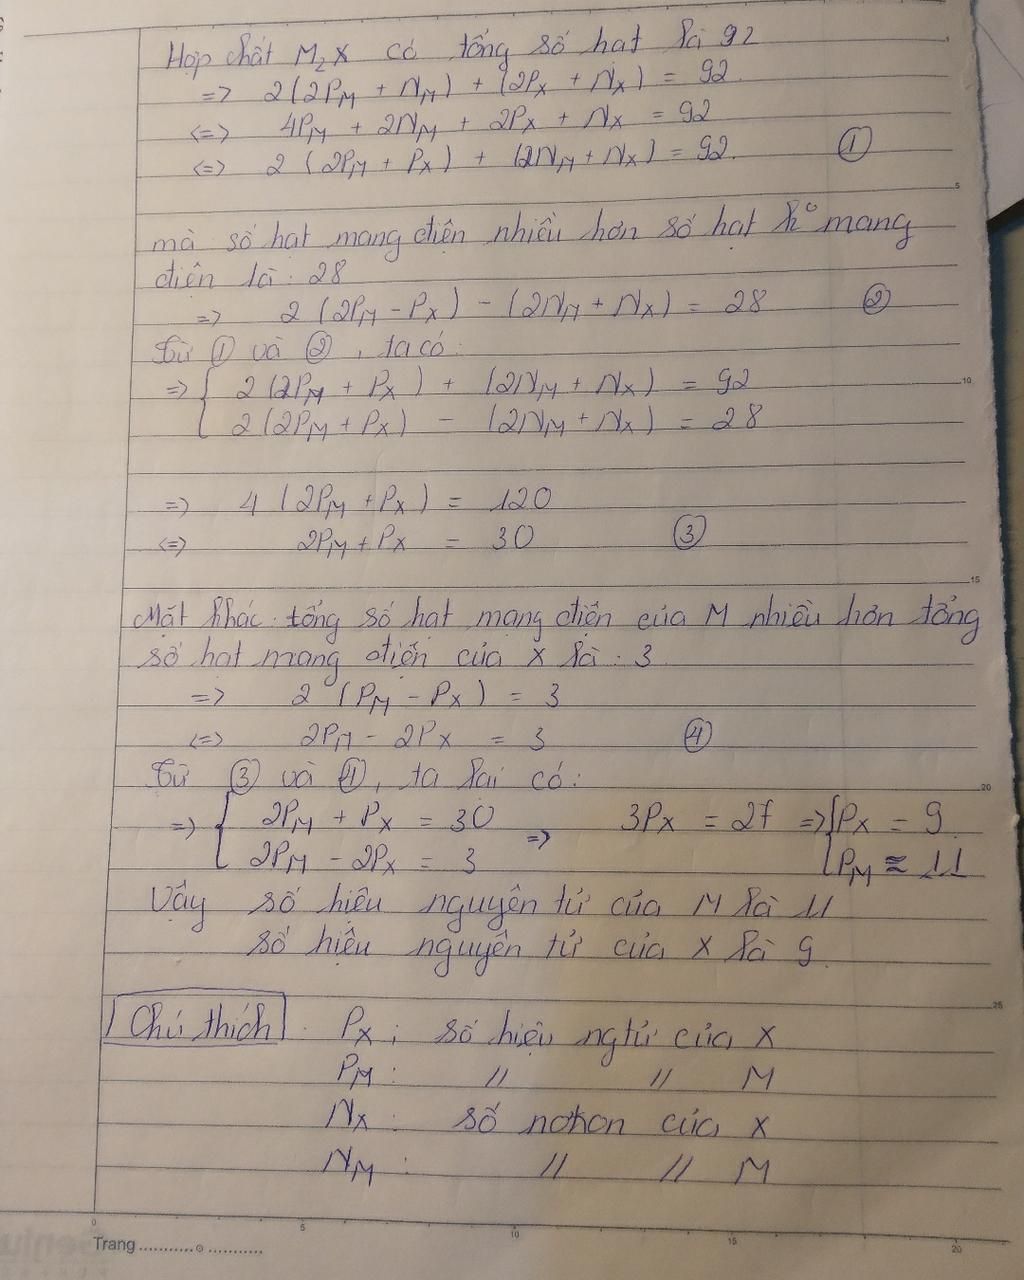 Hợp chất M₂X có tổng số hạt là 92
=> 2(2P_M + N_M) + (2P_X + N_X) = 92.
<=> 4P_M + 2N_M + 2P_X + N_X = 92
<=> 2(2P_M + P_X) + (2N_M + N_X) = 92. ①
mà số hạt mang điện nhiều hơn số hạt k° mang
điện là: 28
=> 2(2P_M - P_X) - (2N_M + N_X) = 28 ②
Từ ① và ②, ta có:
=> { 2(2P_M + P_X) + (2N_M + N_X) = 92
2(2P_M + P_X) - (2N_M + N_X) = 28
=> 4(2P_M + P_X) = 120
<=> 2P_M + P_X = 30 ③
Mặt khác tổng số hạt mang điện của M nhiều hơn tổng
số hạt mang điện của X là: 3
=> 2(P_M - P_X) = 3
<=> 2P_M - 2P_X = 3 ④
Từ ③ và ④, ta lại có:
=> { 2P_M + P_X = 30 => 3P_X = 27 => { P_X = 9
2P_M - 2P_X = 3 P_M ≈ 11
Vậy số hiệu nguyên tử của M là 11
số hiệu nguyên tử của X là 9
Chú thích: P_X: số hiệu ng tử của X
P_M: // // M
N_X: số nơtron của X
N_M: // // M
Trang